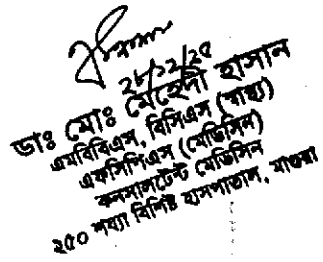 ২৮/১২/২৫
ডাঃ মোঃ মেহেদী হাসান
এমবিবিএস, বিসিএস (স্বাস্থ্য)
এফসিপিএস (মেডিসিন)
কনসালটেন্ট মেডিসিন
২৫০ শয্যা বিশিষ্ট হাসপাতাল, মাগুরা